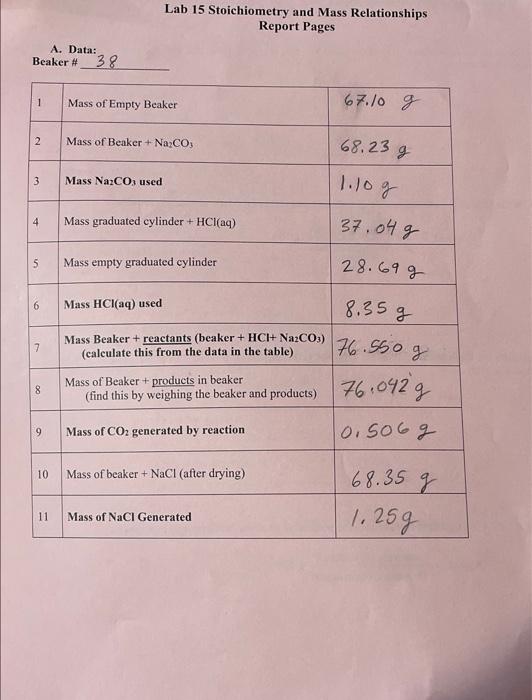 Lab 15 Stoichiometry and Mass Relationships
Report Pages
A. Data:
Beaker # 38
1 Mass of Empty Beaker 67.10 g
2 Mass of Beaker + Na₂CO₃ 68.23 g
3 Mass Na₂CO₃ used 1.10 g
4 Mass graduated cylinder + HCl(aq) 37.04 g
5 Mass empty graduated cylinder 28.69 g
6 Mass HCl(aq) used 8.35 g
7 Mass Beaker + reactants (beaker + HCl+ Na₂CO₃) 76.550 g
(calculate this from the data in the table)
8 Mass of Beaker + products in beaker 76.042 g
(find this by weighing the beaker and products)
9 Mass of CO₂ generated by reaction 0.506 g
10 Mass of beaker + NaCl (after drying) 68.35 g
11 Mass of NaCl Generated 1.25g